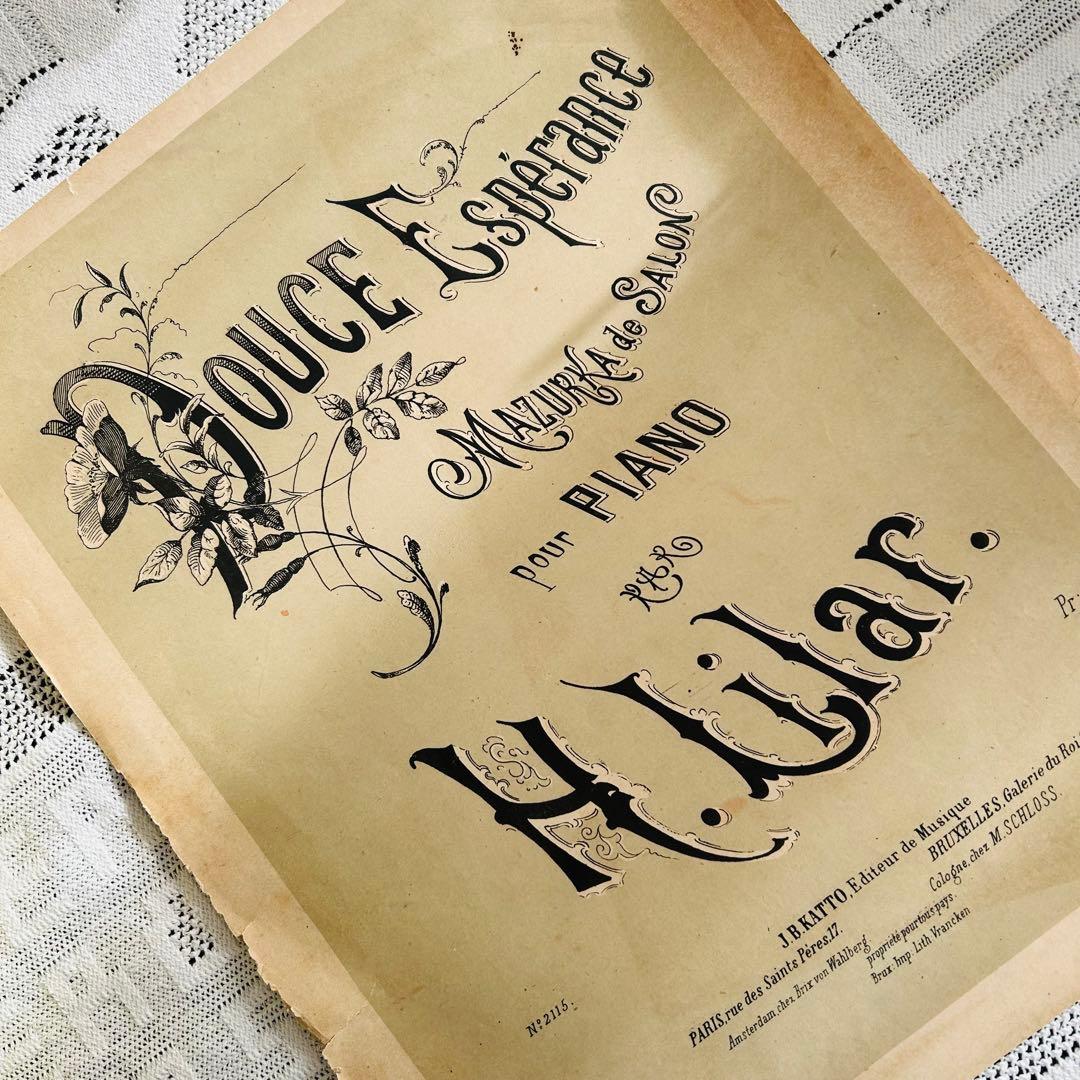 DOUCE Espérance
MAZURKA de SALON
pour PIANO
PAR
H. Lilar.
J.B.KATTO, Editeur de Musique
PARIS, rue des Saints Pères, 17. BRUXELLES, Galerie du Roi
Amsterdam, chez Brix von Wahlberg Cologne, chez M. SCHLOSS.
propriété pour tous pays.
Brux: Imp. Lith Vrancken
Nº 2115.